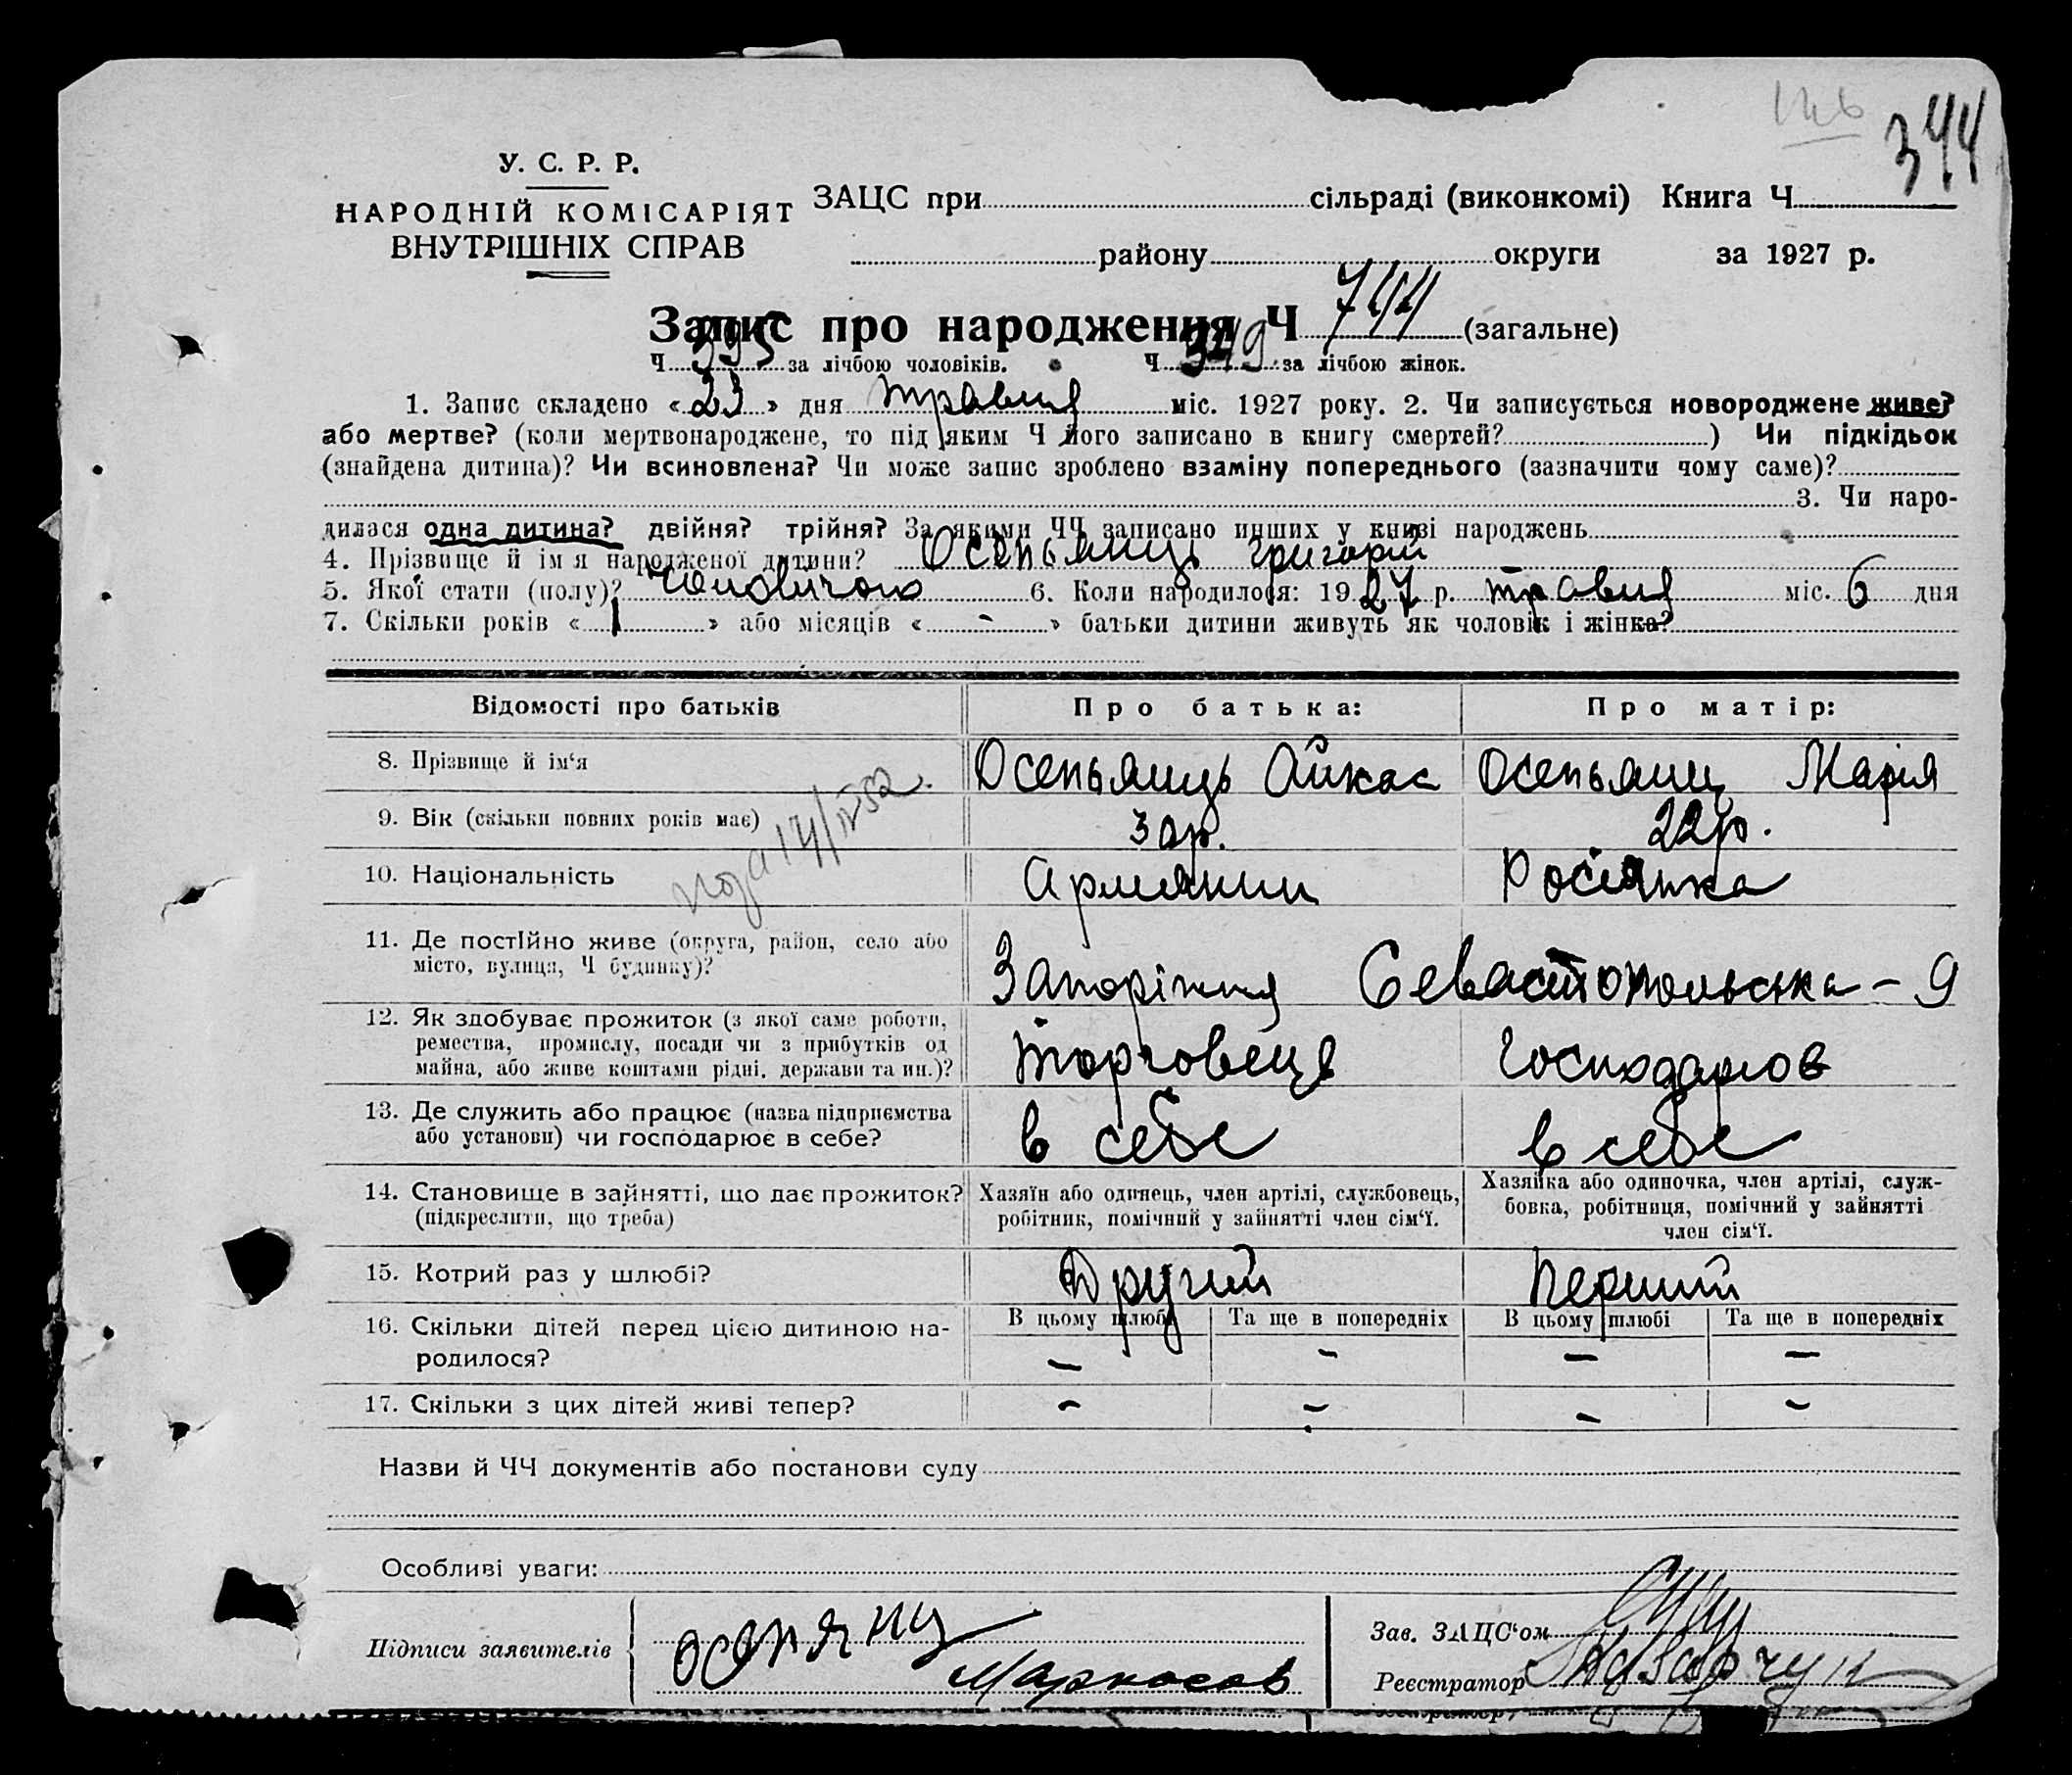 344
У. С. Р. Р.
НАРОДНІЙ КОМІСАРІЯТ
ВНУТРІШНІХ СПРАВ
ЗАЦС при сільраді (виконкомі) Книга Ч
району округи за 1927 р.
Запис про народження Ч 744 (загальне)
Ч 395 за лічбою чоловіків. Ч 349 за лічбою жінок.
1. Запис складено « 23 » дня травня міс. 1927 року. 2. Чи записується новороджене живе?
або мертве? (коли мертвонароджене, то під яким Ч його записано в книгу смертей? ) Чи підкідьок
(знайдена дитина)? Чи всиновлена? Чи може запис зроблено взаміну попереднього (зазначити чому саме)?
3. Чи наро-
дилася одна дитина? двійня? трійня? За якими ЧЧ записано инших у книзі народжень
4. Прізвище й ім я народженої дитини? Осепьянць Григорій
5. Якої стати (полу)? чоловічого 6. Коли народилося: 1927 р. травня міс. 6 дня
7. Скільки років « 1 » або місяців « - » батьки дитини живуть як чоловік і жінка?
Відомості про батьків Про батька: Про матір:
8. Прізвище й ім‘я Осепьянць Айкас Осепьянц Марія
9. Вік (скільки повних років має) 30р. 22р.
10. Національність Армянин Росіянка
11. Де постІйно живе (округа, район, село або
місто, вулиця, Ч будинку)? Запоріжжя Севастопольська - 9
12. Як здобуває прожиток (з якої саме роботи,
ремества, промислу, посади чи з прибутків од
майна, або живе коштами рідні, держави та ин.)? торговець Господарює
13. Де служить або працює (назва підприємства
або установи) чи господарює в себе? в себе в себе
14. Становище в зайнятті, що дає прожиток?
(підкреслити, що треба)
Хазяїн або одинець, член артілі, службовець,
робітник, помічний у зайнятті член сім‘ї.
Хазяйка або одиночка, член артілі, служ-
бовка, робітниця, помічний у зайнятті
член сім‘ї.
15. Котрий раз у шлюбі? Другий Перший
16. Скільки дітей перед цією дитиною на-
родилося?
В цьому шлюбі Та ще в попередніх В цьому шлюбі Та ще в попередніх
- - - -
17. Скільки з цих дітей живі тепер? - - - -
Назви й ЧЧ документів або постанови суду
Особливі уваги:
Підписи заявителів
Маркосов
Зав. ЗАЦС‘ом
Реєстратор